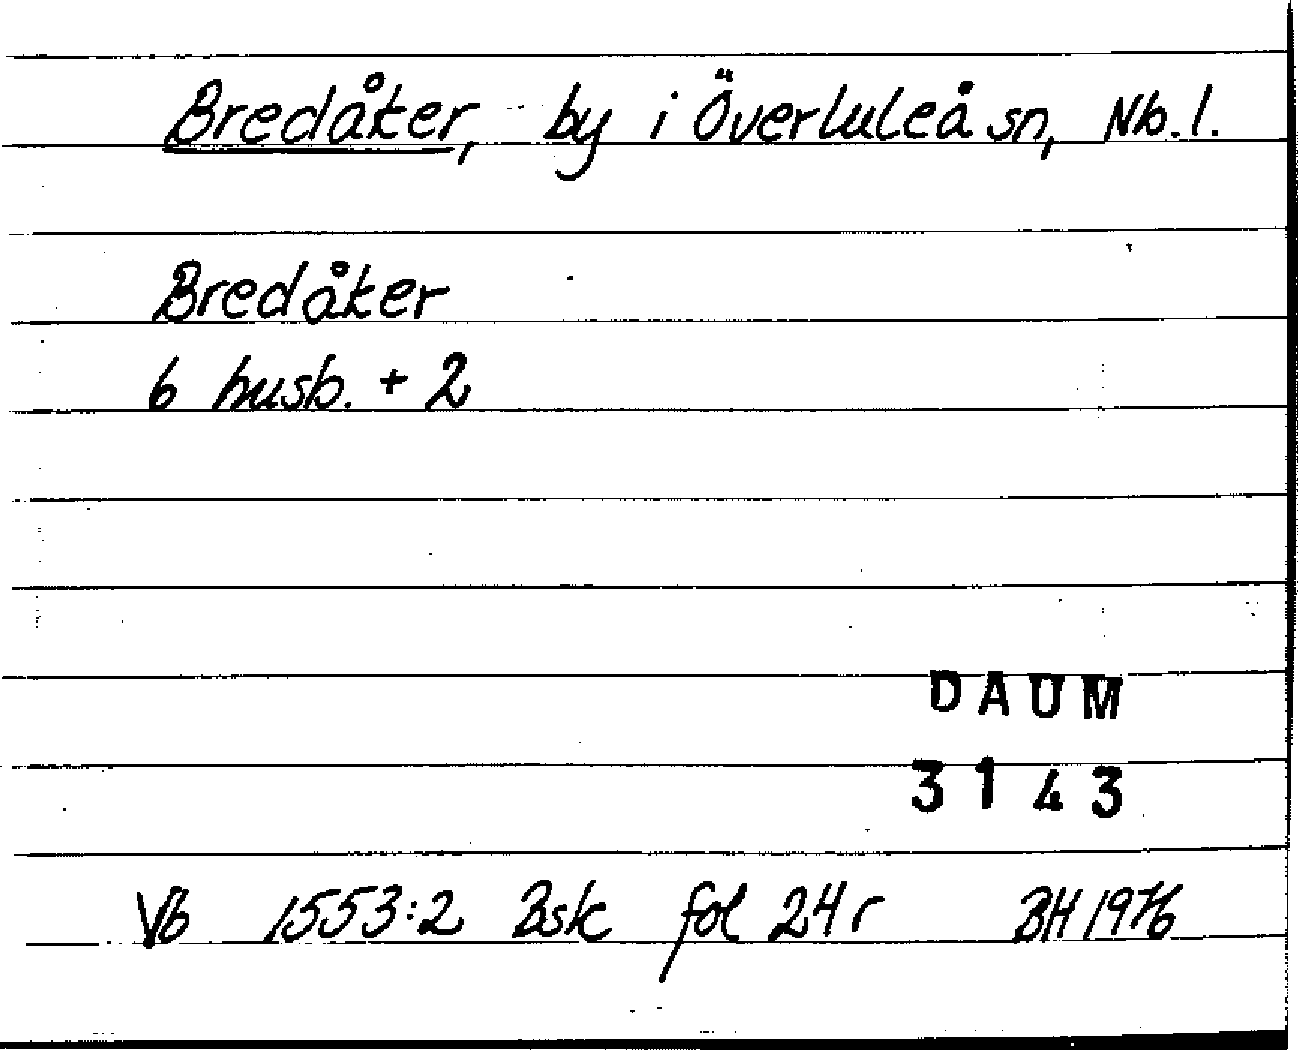 Bredåker, by i Överluleå sn, Nb. l.
Bredåker
6 husb. + 2
DAUM
3143
Vb 1553:2 Bsk fol 24 r BH 1976